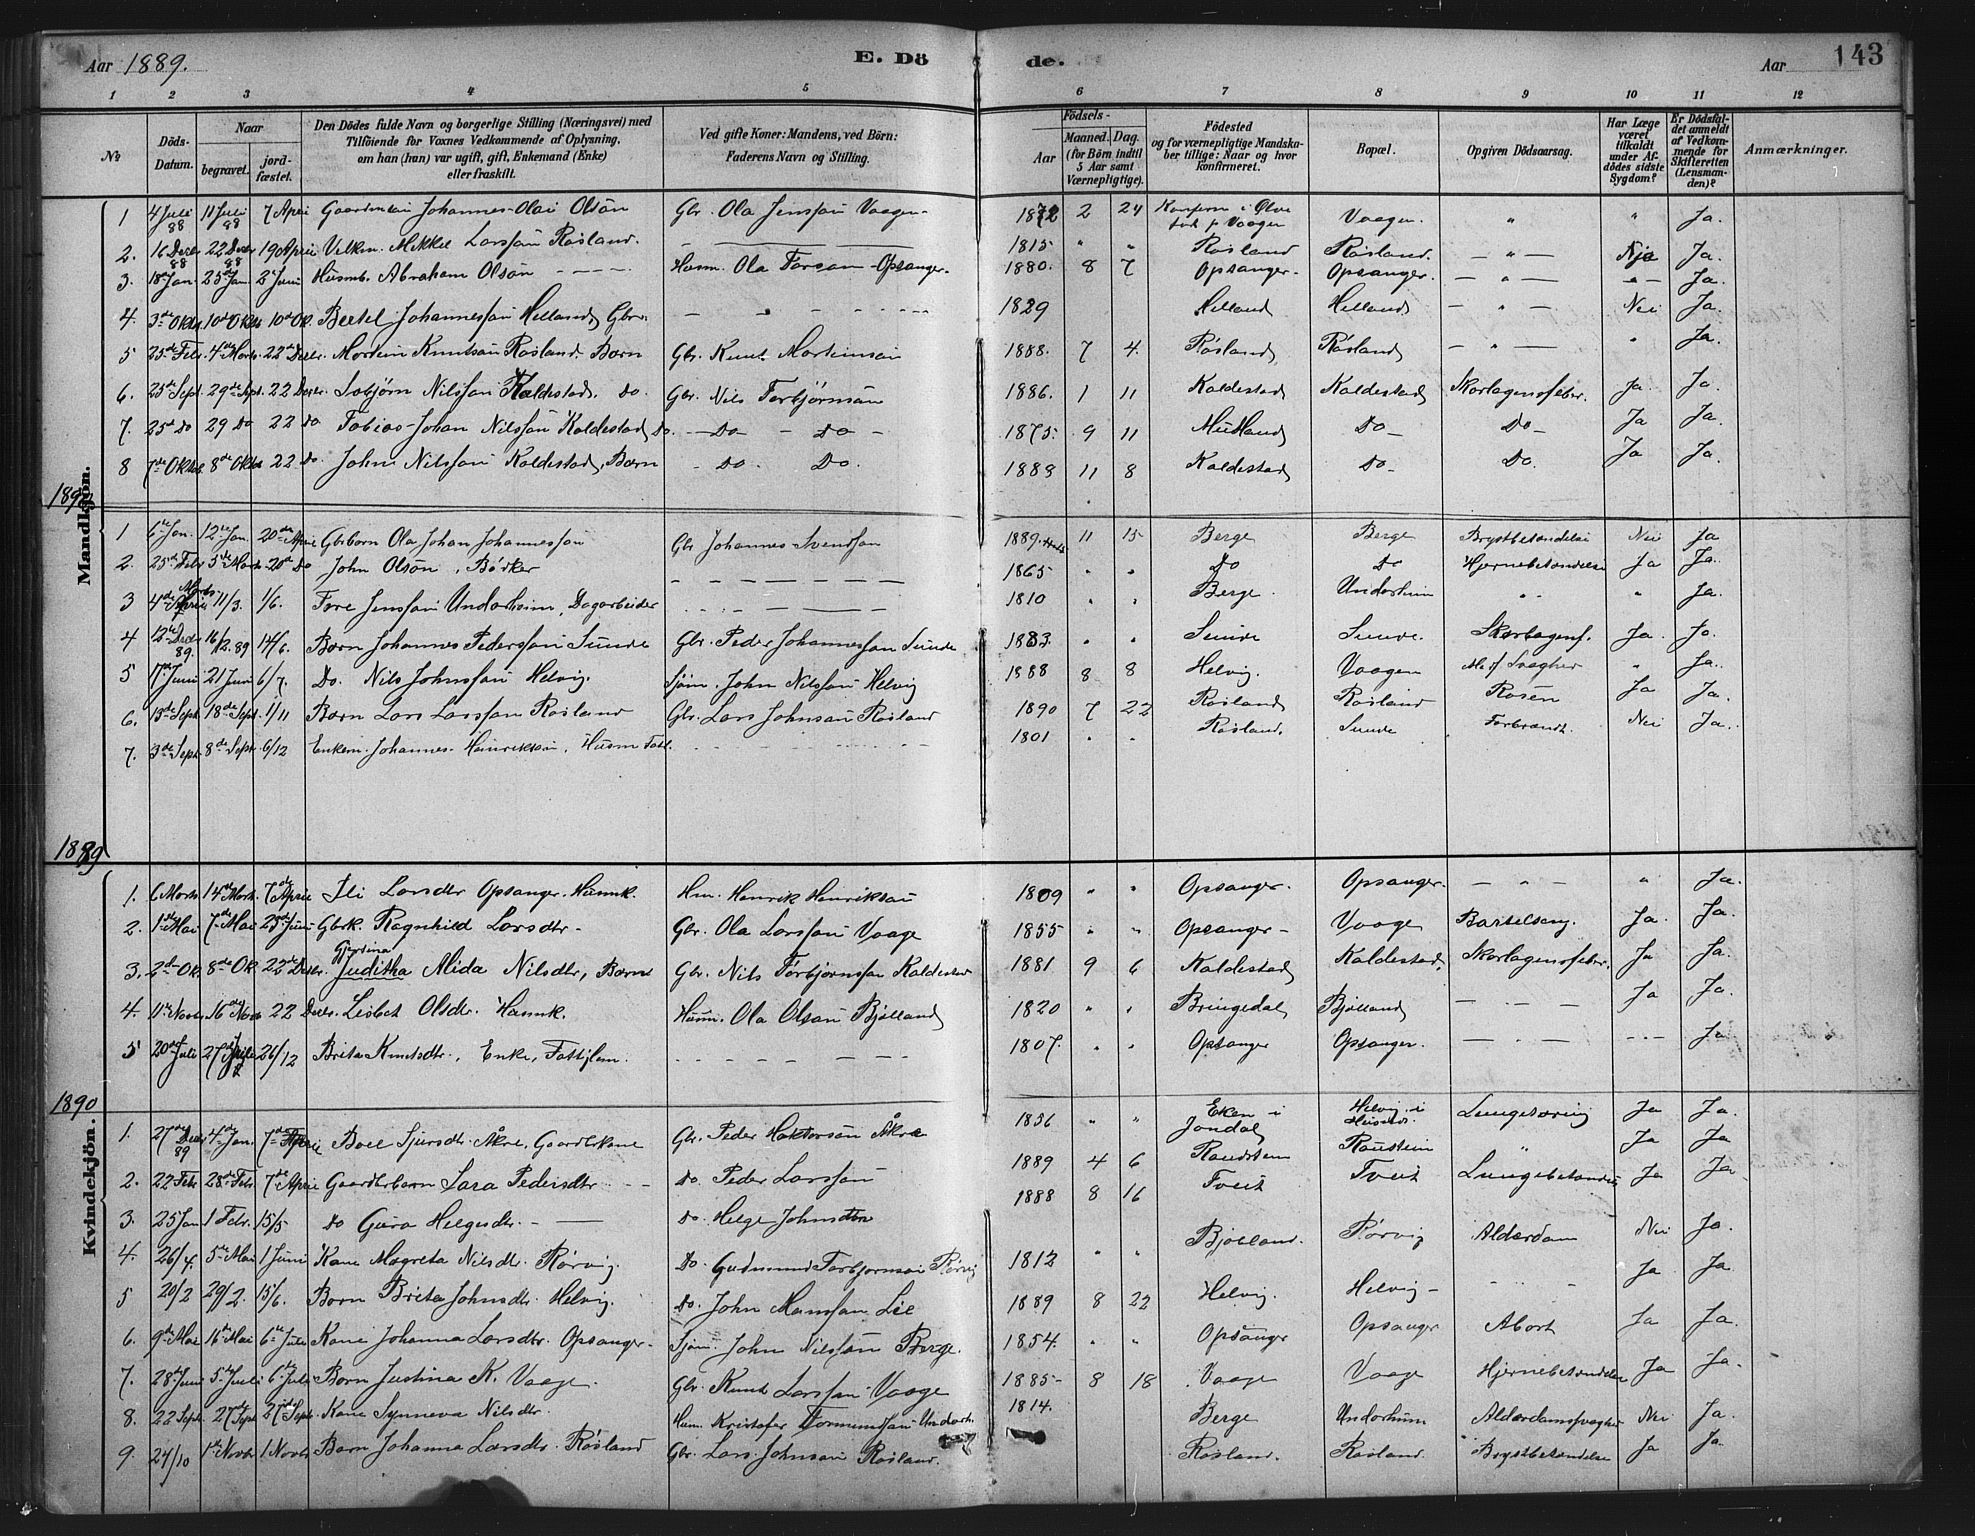 Aar 1889. E. Dö de. Aar 143
1 2 3 4 5 6 7 8 9 10 11 12
№
Döds-Datum.
Naar
begravet.
jordfæstet.
Den Dödes fulde Navn og borgerlige Stilling (Næringsvei) med
Tilföiende for Voxnes Vedkommende af Oplysning,
om han (hun) var ugift, gift, Enkemand (Enke)
eller fraskilt.
Ved gifte Koner: Mandens, ved Börn:
Faderens Navn og Stilling.
Födsels-
Aar
Maaned. Dag.
(for Börn indtil
5 Aar samt
Værnepligtige).
Födested
og for værnepligtige Mandskaber tillige: Naar og hvor
konfirmeret.
Bopæl.
Opgiven Dödsaarsag.
Har Læge
været
tilkaldt
under Afdödes sidste
Sygdom?
Er Dödsfaldet anmeldt
af Vedkommende for
Skifteretten
(Lensmanden)?
Anmærkninger.
Mandkjön.
1 4 Juli 88 11 Juli 88 7 April Gaardman Johannes Olai Olsön Gbr. Ola Jensson Vaagen 1872 2 24 Konfirm i Ølve Vaagen " " Ja.
2. 16 Decbr 88 22 Decbr 88 19 April Mikkel Larsson Røsland. 1815 " " Røsland Røsland. - " - Ja.
3. 18 Jan 25 Jan 2 Juni Husmb. Abraham Olsön Husm. Ola Opsanger. 1880. 8 7 Opsanger. Opsanger. - " - Ja.
4. 3die Oktbr 10de Oktbr 10de Ok. Bertel Johannesson Helland, Gbr. 1829 Helland Helland - " - Nei Ja.
5 25de Febr 4de Marts 22de Decbr. Martin Knutsön Røsland. Barn Gbr. Knut Martinson 1888. 7 4. Røsland Røsland - " - " Ja.
6. 25de Sept 29de Sept 22 Decbr. Nilsson Kaldestad. Do. Gbr. Nils Torbjørnsön 1886. 1 11 Kaldestad Kaldestad Skarlagensfeber. Ja Ja.
7. 25de Do 29 Do 22 Do Tobias Johan Nilsson Kaldestad Do. Do Do 1875. 9 11 Do Do Ja Ja.
8 7de Oktbr 8de Oktbr 22 Do John Nilsson Kaldestad, Barn Do. Do. 1883 11 8 Kaldestad Do Do. Ja Ja.
1890
1 6te Jan. 12te Jan. 20de April Gbrbarn Ola Johan Johannesson Gbr Johannes Svendson 1889. 11 15 Berge Berge Brystbetændelse Nei Ja
2. 25de Febr 5te Marts 20de Do John Olsön, Bødker 1865 " " Do Do Hjernebetændelse Ja Ja.
3 4de Marts April 11/3. 1/6. Tore Jensson Undarheim, Dagarbeider 1810 " " Berge. Undarheim " " Ja.
4 12te Decbr 89. 16/2.89 14/6. Barn Johannes Pedersson Sunde Gbr. Peder Johannesson Sunde 1883. " " Sunde Sunde. Skarlagensf. Ja. Ja.
5 17de Juni 21 Juni 6/7 Do. Nils Johnsson Helvig. Sjøm. John Nilsson Helvig 1888 8 8 Helvig. Vaagen Svaghed " Ja.
6. 13de Sept. 18de Sept. 1/11 Barn Lars Larsson Røsland Gbr. Lars Johnsön Røsland 1890 7 22 Røsland Røsland Rosen Ja Ja.
7. 3die Sept. 8de Sept. 6/12 Enkem. Johannes Heinriksön, Husm 1801 " " Røsland. Sunde Forbrændt. Nei Ja.
1889
Kvindekjön.
1. 6 Marts 14de Marts 7de April Ili Larsdtr Opsanger Husmk. Hm. Henrik Henriksön 1809 " " Opsanger. Opsanger. - " - " Ja.
2. 1ste Mai 7de Mai 25de Juni Gbrk. Ragnhild Larsdtr Gbr. Ola Larsson Vaage 1855 " " Opsanger Vaage Barselseng. Ja. Ja.
3. 2det Ok 8de Ok. 22de Decbr. Gjertina Juditha Alida Nilsdtr, Barn Gbr. Nils Torbjørnsson Kaldestad 1881 9 6 Kaldestad Kaldestad. Skarlagensfeber. Ja Ja.
4. 11te Novbr 16de Novbr 22 Decbr. Lisbet Olsdr. Husmk. Husm. Ola Olsön Bjølland 1820 " " Bringedal Bjølland - . - Ja Ja.
5 20de Juli 27de Juli 26/12 Brita Knutsdtr., Enke, Fattiglem. 1807. " " Opsanger Opsanger. - . - Ja
1890
1. 27de Decbr 89 4de Jan. 7de April Boel Sjursdtr Åkre, Gaardbrkone Gbr. Peder Haktorsön Åkre 1856 " " Eken i Jondal Helvig i Husnes. Lungetæring Ja Ja.
2. 22 Febr 28de Febr. 7de April Gaardbrbarn Sara Pedersdtr Do. Peder Larsson 1889 4 6 Raudstein Raustein " Ja Ja
3. 25 Jan 1 Febr. 15/5 Do Guro Helgesdtr. Do. Helge Johnsön 1888 8 16 Tveit Tveit Lungebetændelse Ja Ja
4. 26/4. 5te Mai 1 Juni Kone Magreta Nilsdtr. Rørvig. Do. Gudmund Torbjørnsön Rørvig 1812 " " Bjølland. Rørvig Alderdom Nei Ja.
5 20/2 29/2. 15/6. Barn Brita Johnsdtr. Helvig. Do. John Monsson Lie 1889 8 22 Helvig. Helvig Ja Ja.
6. 9de Mai 16de Mai 6te Juli Kone Johanna Larsdtr. Opsanger Sjøm. John Nilsson Berge. 1854. " " Opsanger Opsanger Abort Ja Ja.
7. 28de Juni 5te Juli 6te Juli Barn Justina K. Vaage. Gbr. Knut Larsson Vaage 1885 8 18 Vaage Vaage Hjernebetændelse Ja Ja.
8. 22 Sept. 27de Sept 27de Sept. Kone Synneva Nilsdtr. Husm. Kristofer Tormundson Undarh. 1814. Berge Undarheim Alderdomssvaghed Nei Ja.
9. 24/10 1ste Novbr 1 Novbr Barn Johanna Larsdtr. Røsland Gbr. Lars Johnsön Røsland. Røsland. Røsland Brystbetændelse Ja Ja.